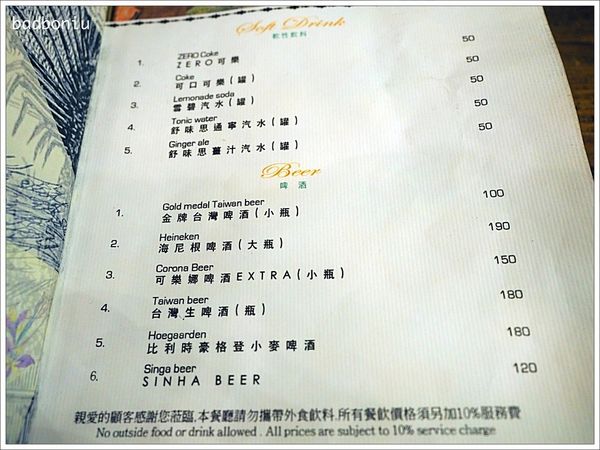 badboniu
Soft Drink
軟性飲料
ZERO Coke
1. ZERO可樂 50
Coke
2. 可口可樂(罐) 50
Lemonade soda
3. 雪碧汽水(罐) 50
Tonic water
4. 舒味思通寧汽水(罐) 50
Ginger ale
5. 舒味思薑汁汽水(罐) 50
Beer
啤酒
Gold medal Taiwan beer
1. 金牌台灣啤酒(小瓶) 100
Heineken
2. 海尼根啤酒(大瓶) 190
Corona Beer
3. 可樂娜啤酒EXTRA(小瓶) 150
Taiwan beer
4. 台灣生啤酒(瓶) 180
Hoegaarden
5. 比利時豪格登小麥啤酒 180
Singa beer
6. SINHA BEER 120
親愛的顧客感謝您蒞臨,本餐廳請勿攜帶外食飲料.所有餐飲價格須另加10%服務費
No outside food or drink allowed . All prices are subject to 10% service charge